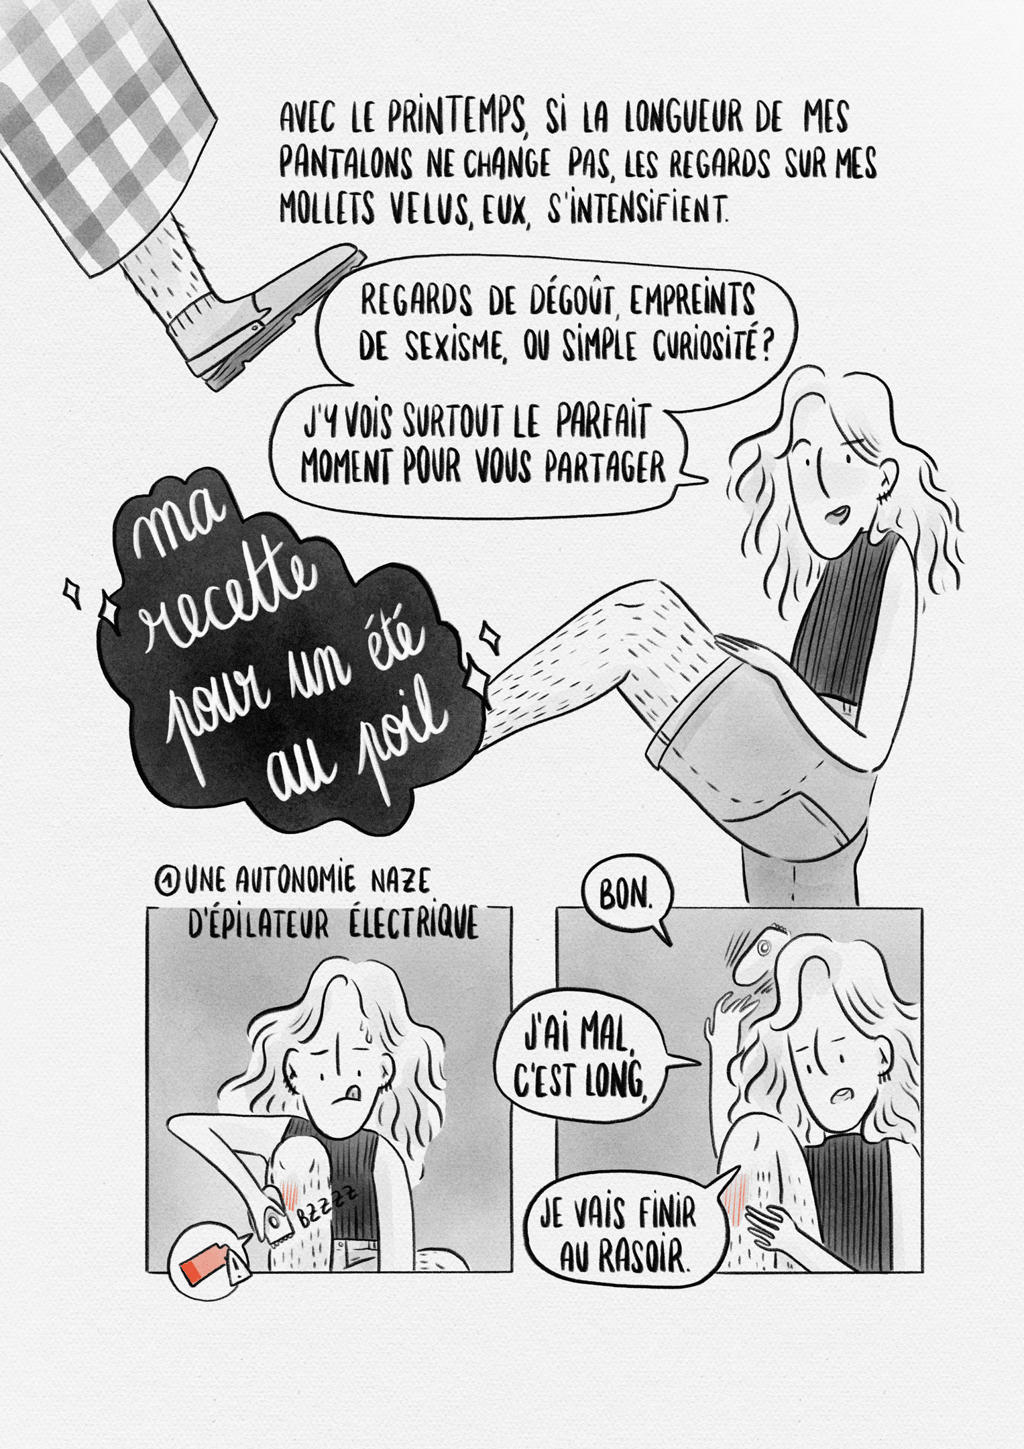 AVEC LE PRINTEMPS, SI LA LONGUEUR DE MES
PANTALONS NE CHANGE PAS, LES REGARDS SUR MES
MOLLETS VELUS, EUX, S'INTENSIFIENT.
REGARDS DE DÉGOÛT, EMPREINTS
DE SEXISME, OU SIMPLE CURIOSITÉ?
J'Y VOIS SURTOUT LE PARFAIT
MOMENT POUR VOUS PARTAGER
ma
recette
pour un été
au poil
① UNE AUTONOMIE NAZE
D'ÉPILATEUR ÉLECTRIQUE
BZZZZ
BON.
J'AI MAL,
C'EST LONG,
JE VAIS FINIR
AU RASOIR.